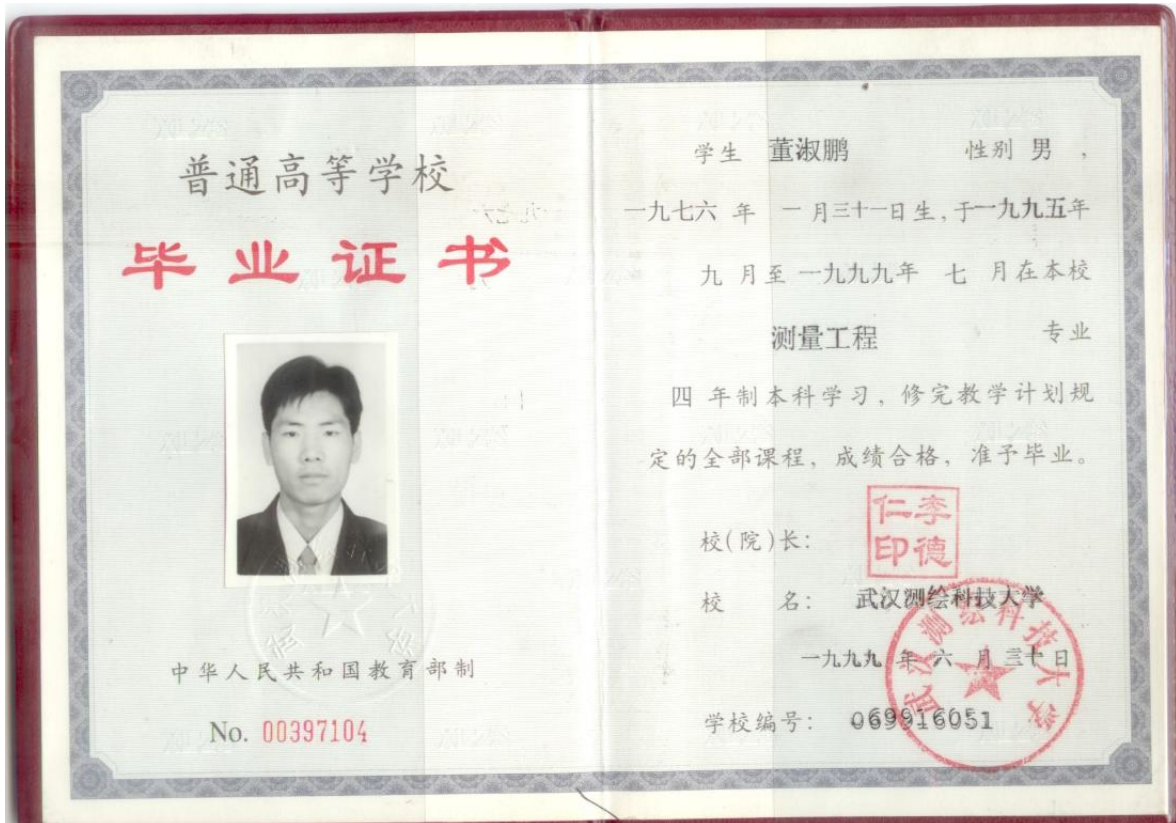 普通高等学校
毕业证书
中华人民共和国教育部制
No. 00397104
学生 董淑鹏 性别 男 ,
一九七六 年 一 月三十一日生,于一九九五年
九 月至 一九九九年 七 月在本校
测量工程 专业
四 年制本科学习，修完教学计划规
定的全部课程，成绩合格，准予毕业。
校(院)长:
李德仁印
校 名: 武汉测绘科技大学
武汉测绘科技大学
一九九九 年 六 月 三十 日
学校编号: 069916051